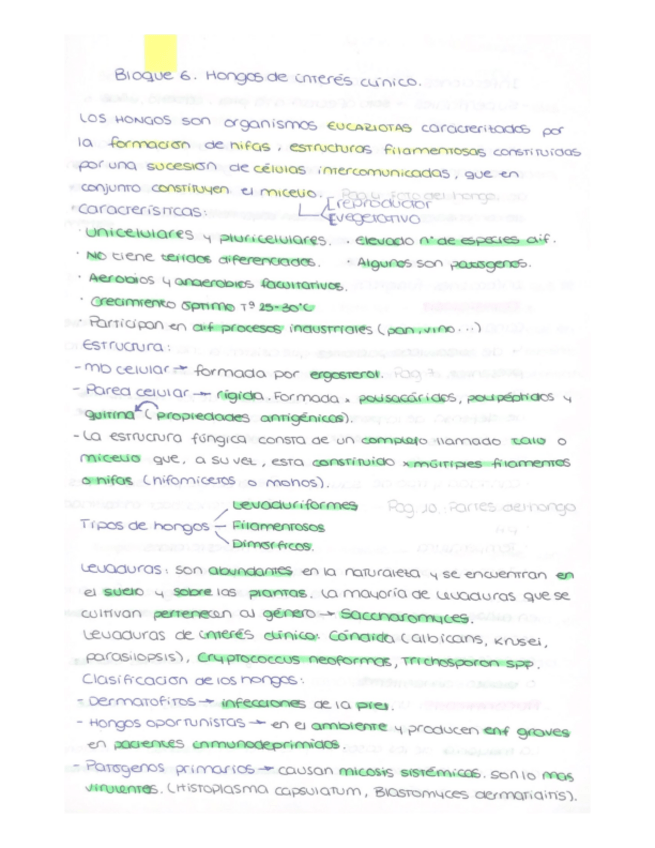 Bloque 6. Hongos de interés clínico.
LOS HONGOS son organismos EUCARIOTAS caracteritados por
la formación de hifas, estructuras filamentosas constituidas
por una sucesión de células intercomunicadas, que en
conjunto constituyen el micelio. Pag 4. ciclo del hongo.
Características: reproductor
vegetativo
· Unicelulares y pluricelulares. · elevado nº de especies dif.
· NO tiene tejidos diferenciados. · Algunos son patógenos.
· Aerobios y anaerobios facultativos.
· Crecimiento óptimo Tª 25-30ºC
· Participan en dif procesos industriales (pan, vino...)
Estructura:
- mb celular → formada por ergosterol. Pag 7.
- Pared celular → rígida. Formada x polisacáridos, polipéptidos y
quitina (propiedades antigénicas).
- La estructura fúngica consta de un complejo llamado talo o
micelio que, a su vez, esta constituido x múltiples filamentos
o hifas (hifomicetos o mohos).
Levaduriformes Pag. 10. Partes del hongo
Tipos de hongos - Filamentosos
Dimórficos.
Levaduras: son abundantes en la naturaleza y se encuentran en
el suelo y sobre las plantas. La mayoría de levaduras que se
cultivan pertenecen al género → Saccharomyces.
Levaduras de interés clínico: Cándida (albicans, krusei,
parasilopsis), Cryptococcus neoformas, Trichosporon spp.
Clasificación de los hongos:
- Dermatofitos → infecciones de la piel.
- Hongos oportunistas → en el ambiente y producen enf graves
en pacientes inmunodeprimidos.
- Patógenos primarios → causan micosis sistémicas. son lo mas
virulentos. (Histoplasma capsulatum, Blastomyces dermatiditis).